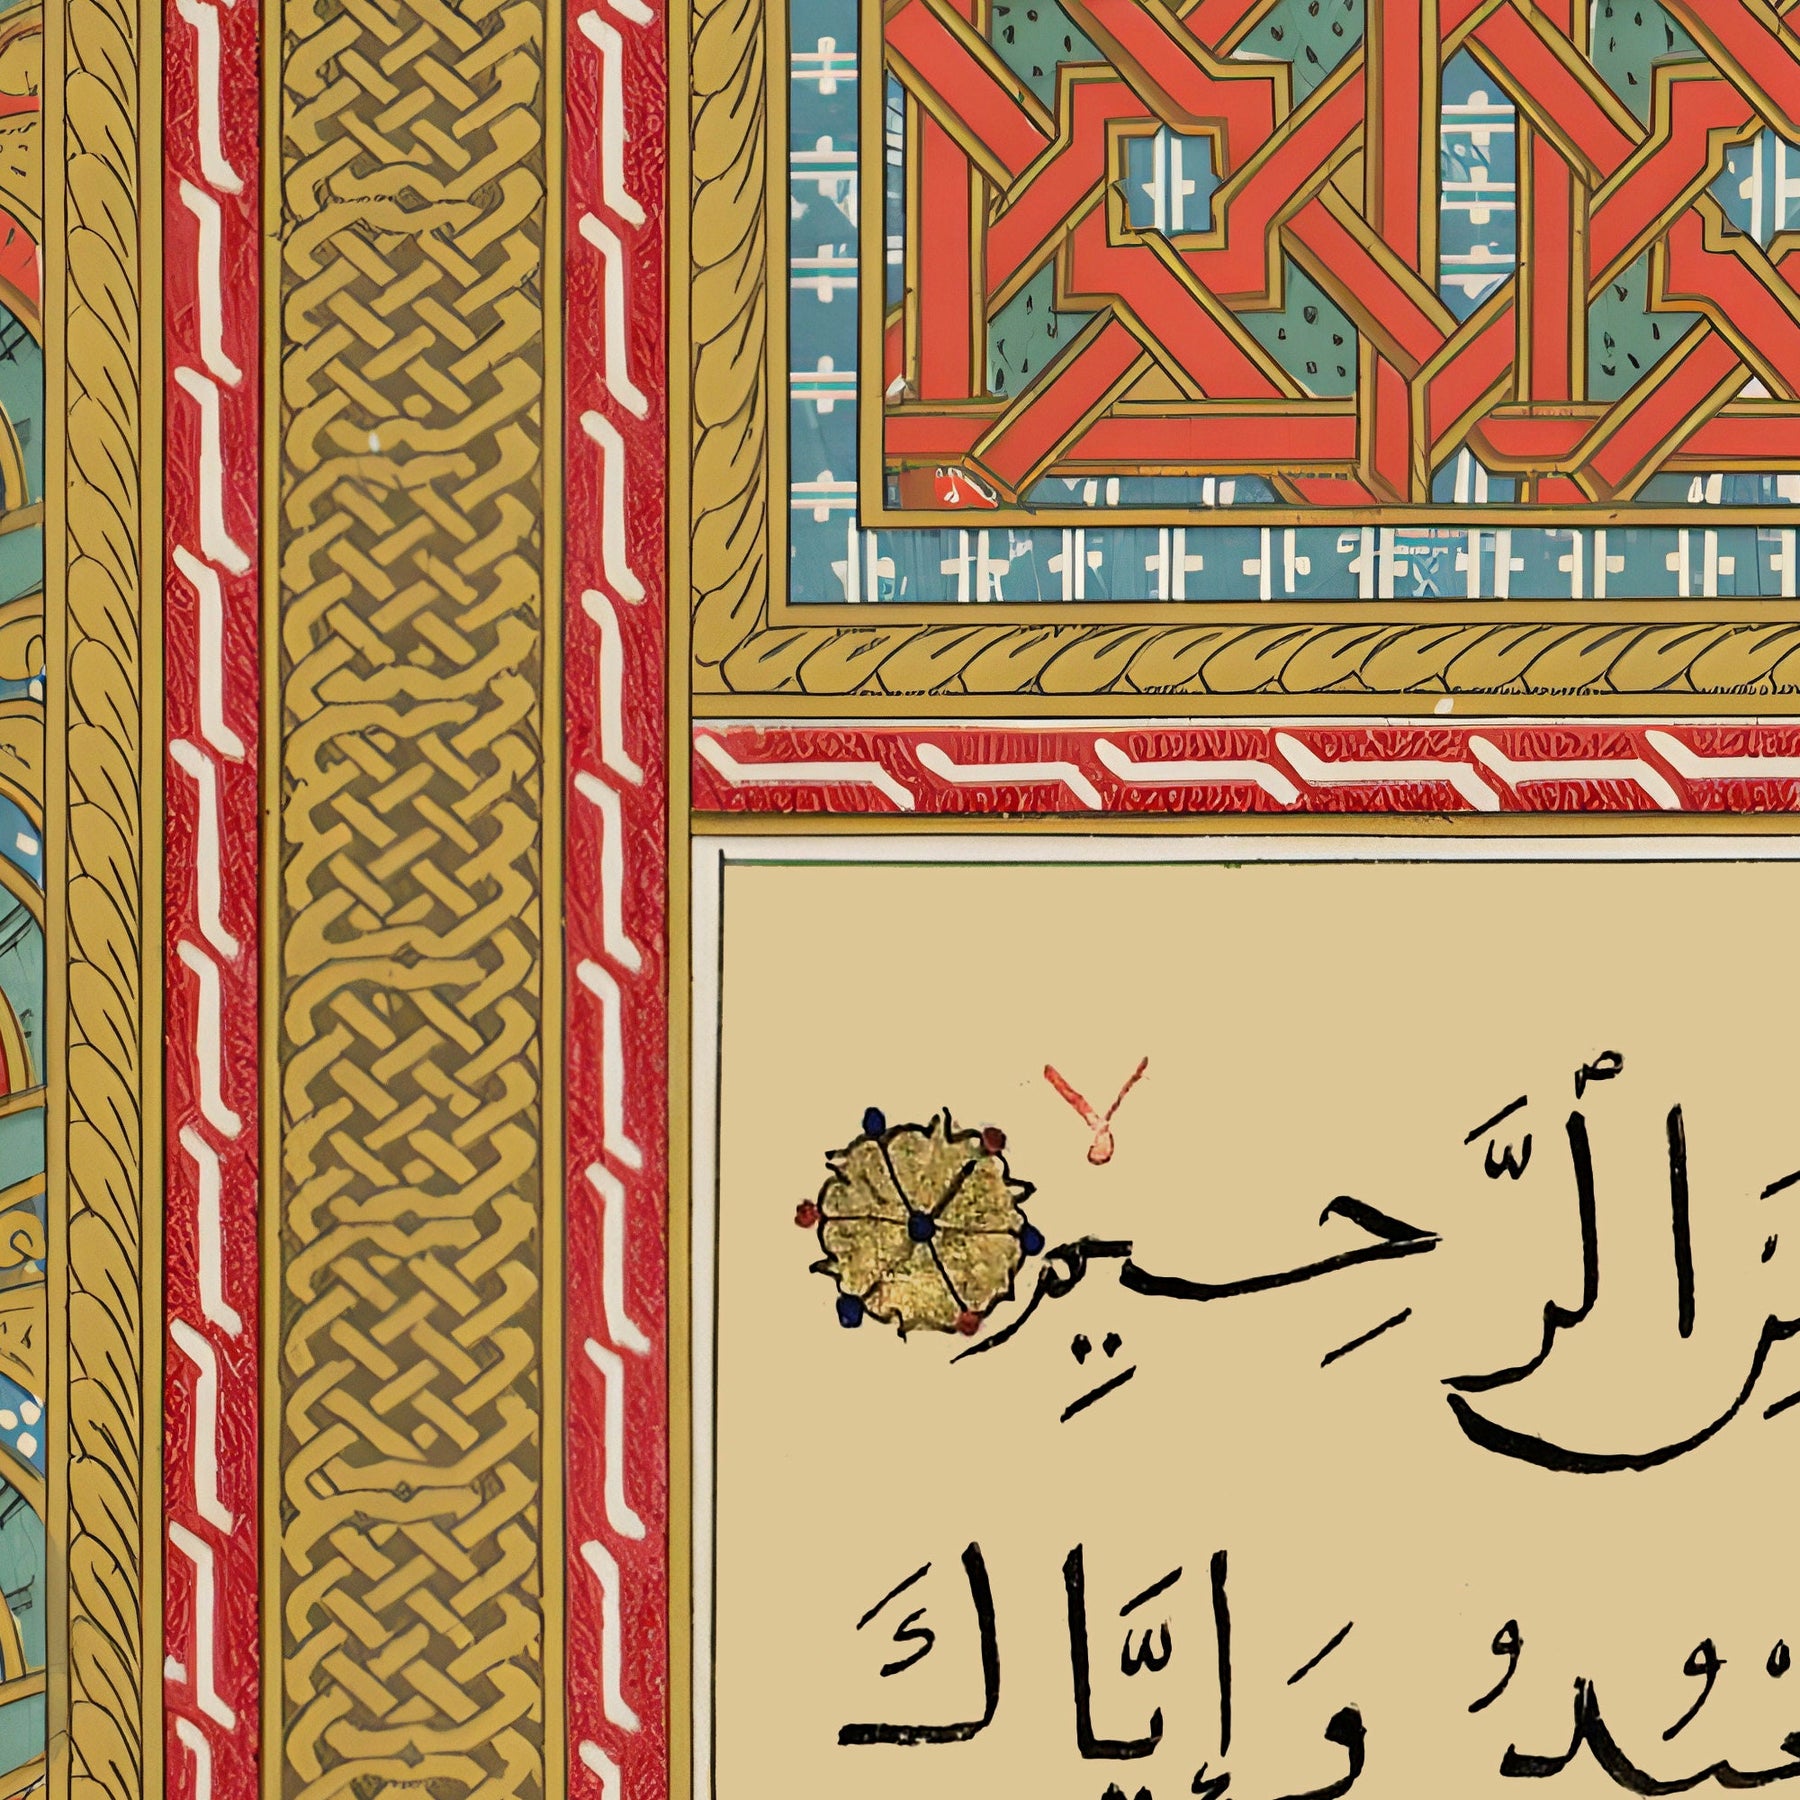 ٱلرَّحِيمِ
نَعْبُدُ وَإِيَّاكَ